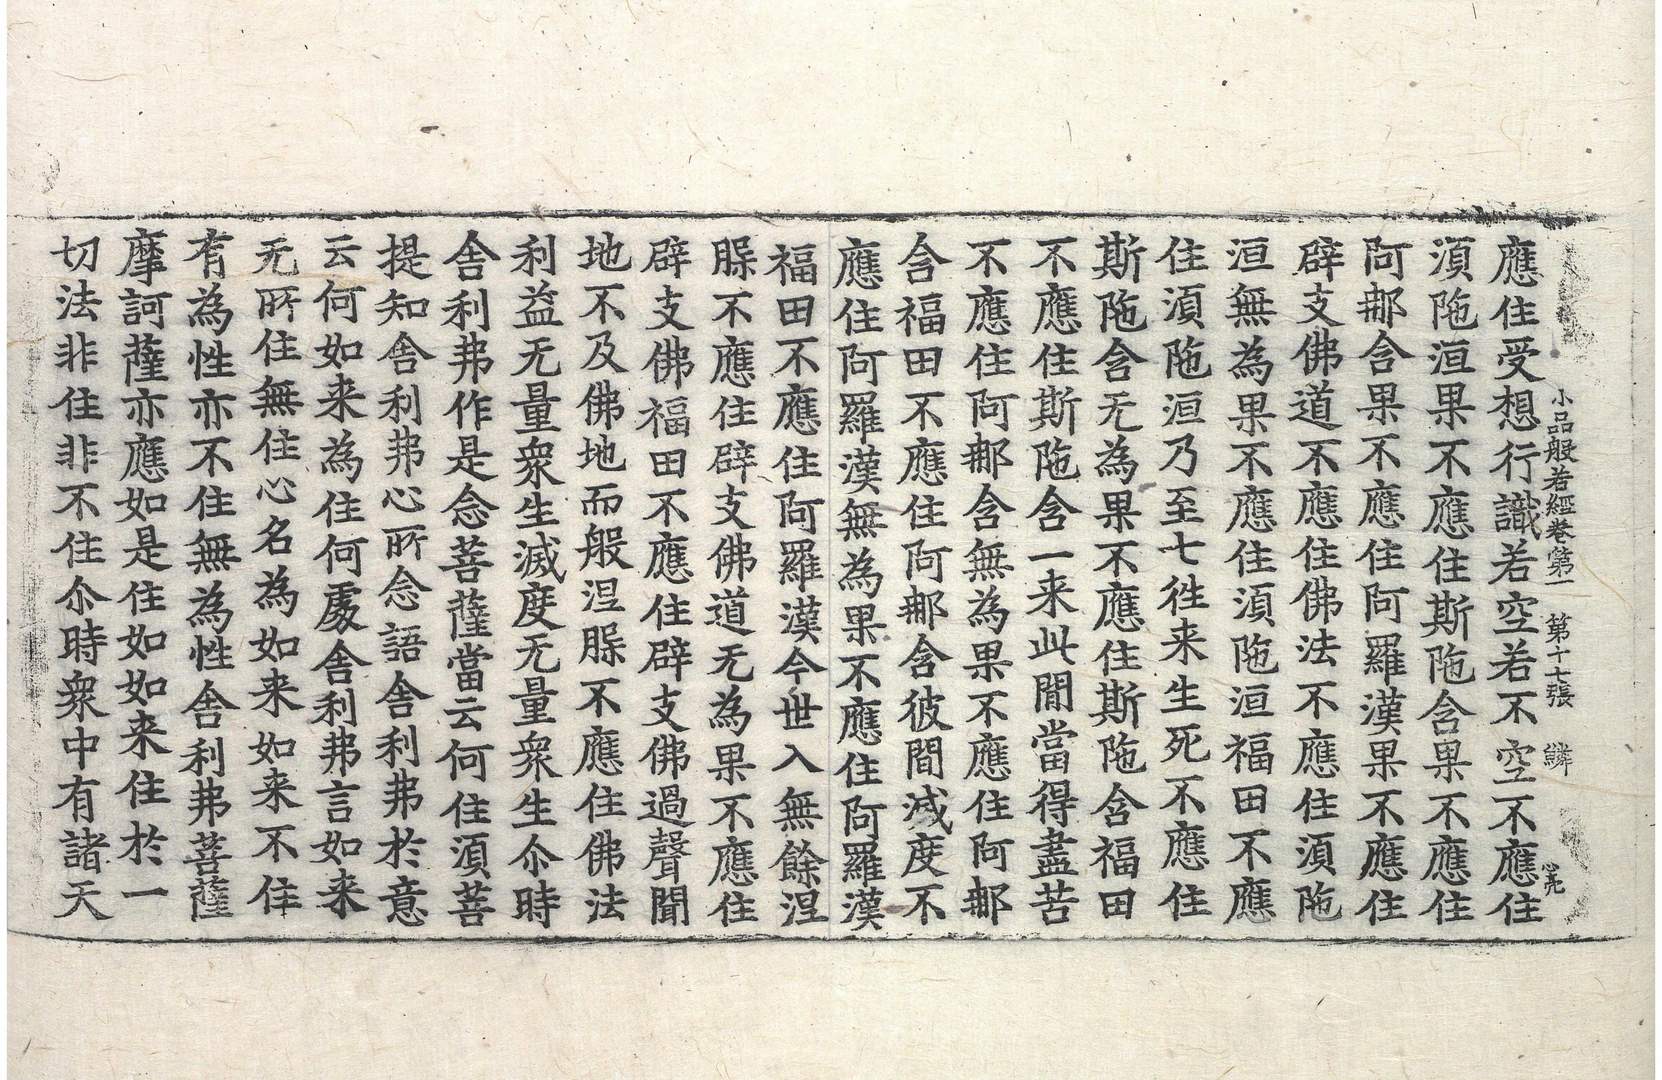 小品般若經卷第一　第十七張　鱗
心亮
應住受想行識若空若不空不應住
須陁洹果不應住斯陁含果不應住
阿那含果不應住阿羅漢果不應住
辟支佛道不應住佛法不應住須陁
洹無為果不應住須陁洹福田不應
住須陁洹乃至七徃来生死不應住
斯陁含无為果不應住斯陁含福田
不應住斯陁含一来此間當得盡苦
不應住阿那含無為果不應住阿那
含福田不應住阿那含彼間滅度不
應住阿羅漢無為果不應住阿羅漢
福田不應住阿羅漢今世入無餘涅
槃不應住辟支佛道无為果不應住
辟支佛福田不應住辟支佛過聲聞
地不及佛地而般涅槃不應住佛法
利益无量衆生滅度无量衆生尒時
舍利弗作是念菩薩當云何住須菩
提知舍利弗心所念語舍利弗於意
云何如来為住何處舍利弗言如来
无所住無住心名為如来如来不住
有為性亦不住無為性舍利弗菩薩
摩訶薩亦應如是住如如来住於一
切法非住非不住尒時衆中有諸天